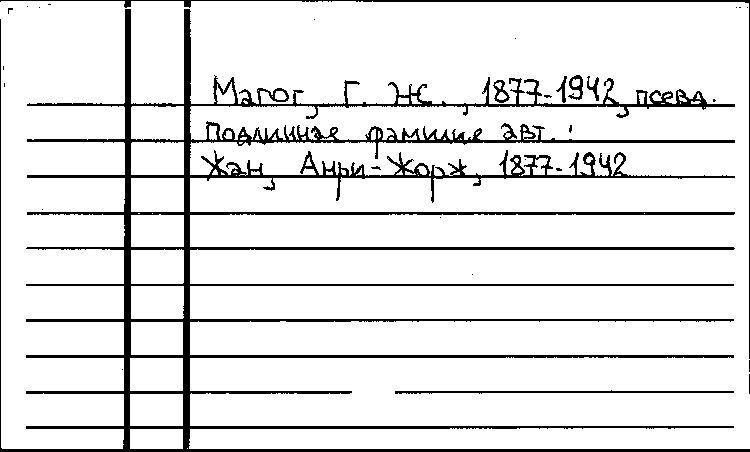 Магог, Г. Ж., 1877-1942, псевд.
Подлинная фамилия авт.:
Жан, Анри-Жорж, 1877-1942